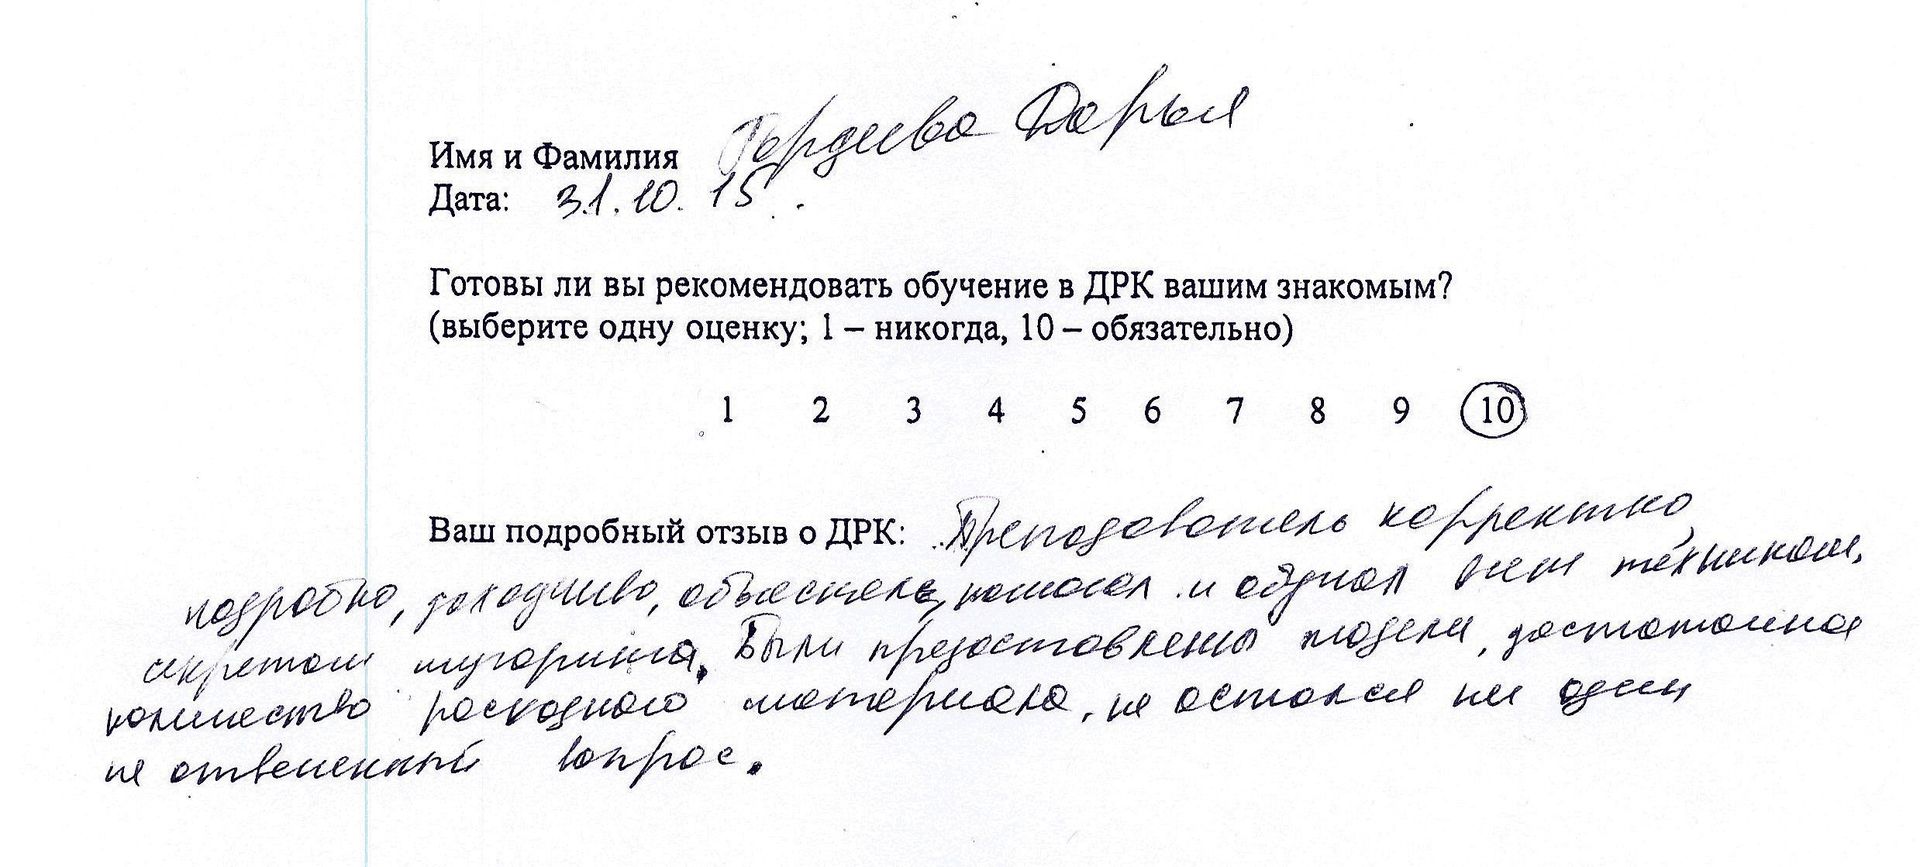 Имя и Фамилия Гордеева Дарья
Дата: 31.10.15.
Готовы ли вы рекомендовать обучение в ДРК вашим знакомым?
(выберите одну оценку; 1 – никогда, 10 – обязательно)
1 2 3 4 5 6 7 8 9 10
Ваш подробный отзыв о ДРК: Преподаватель корректно,
подробно, доходчиво, объяснял, помогал и обучал всем техникам,
секретам шугаринга. Были предоставлены модели, достаточное
количество расходного материала, не остался ни один
не отвеченный вопрос.